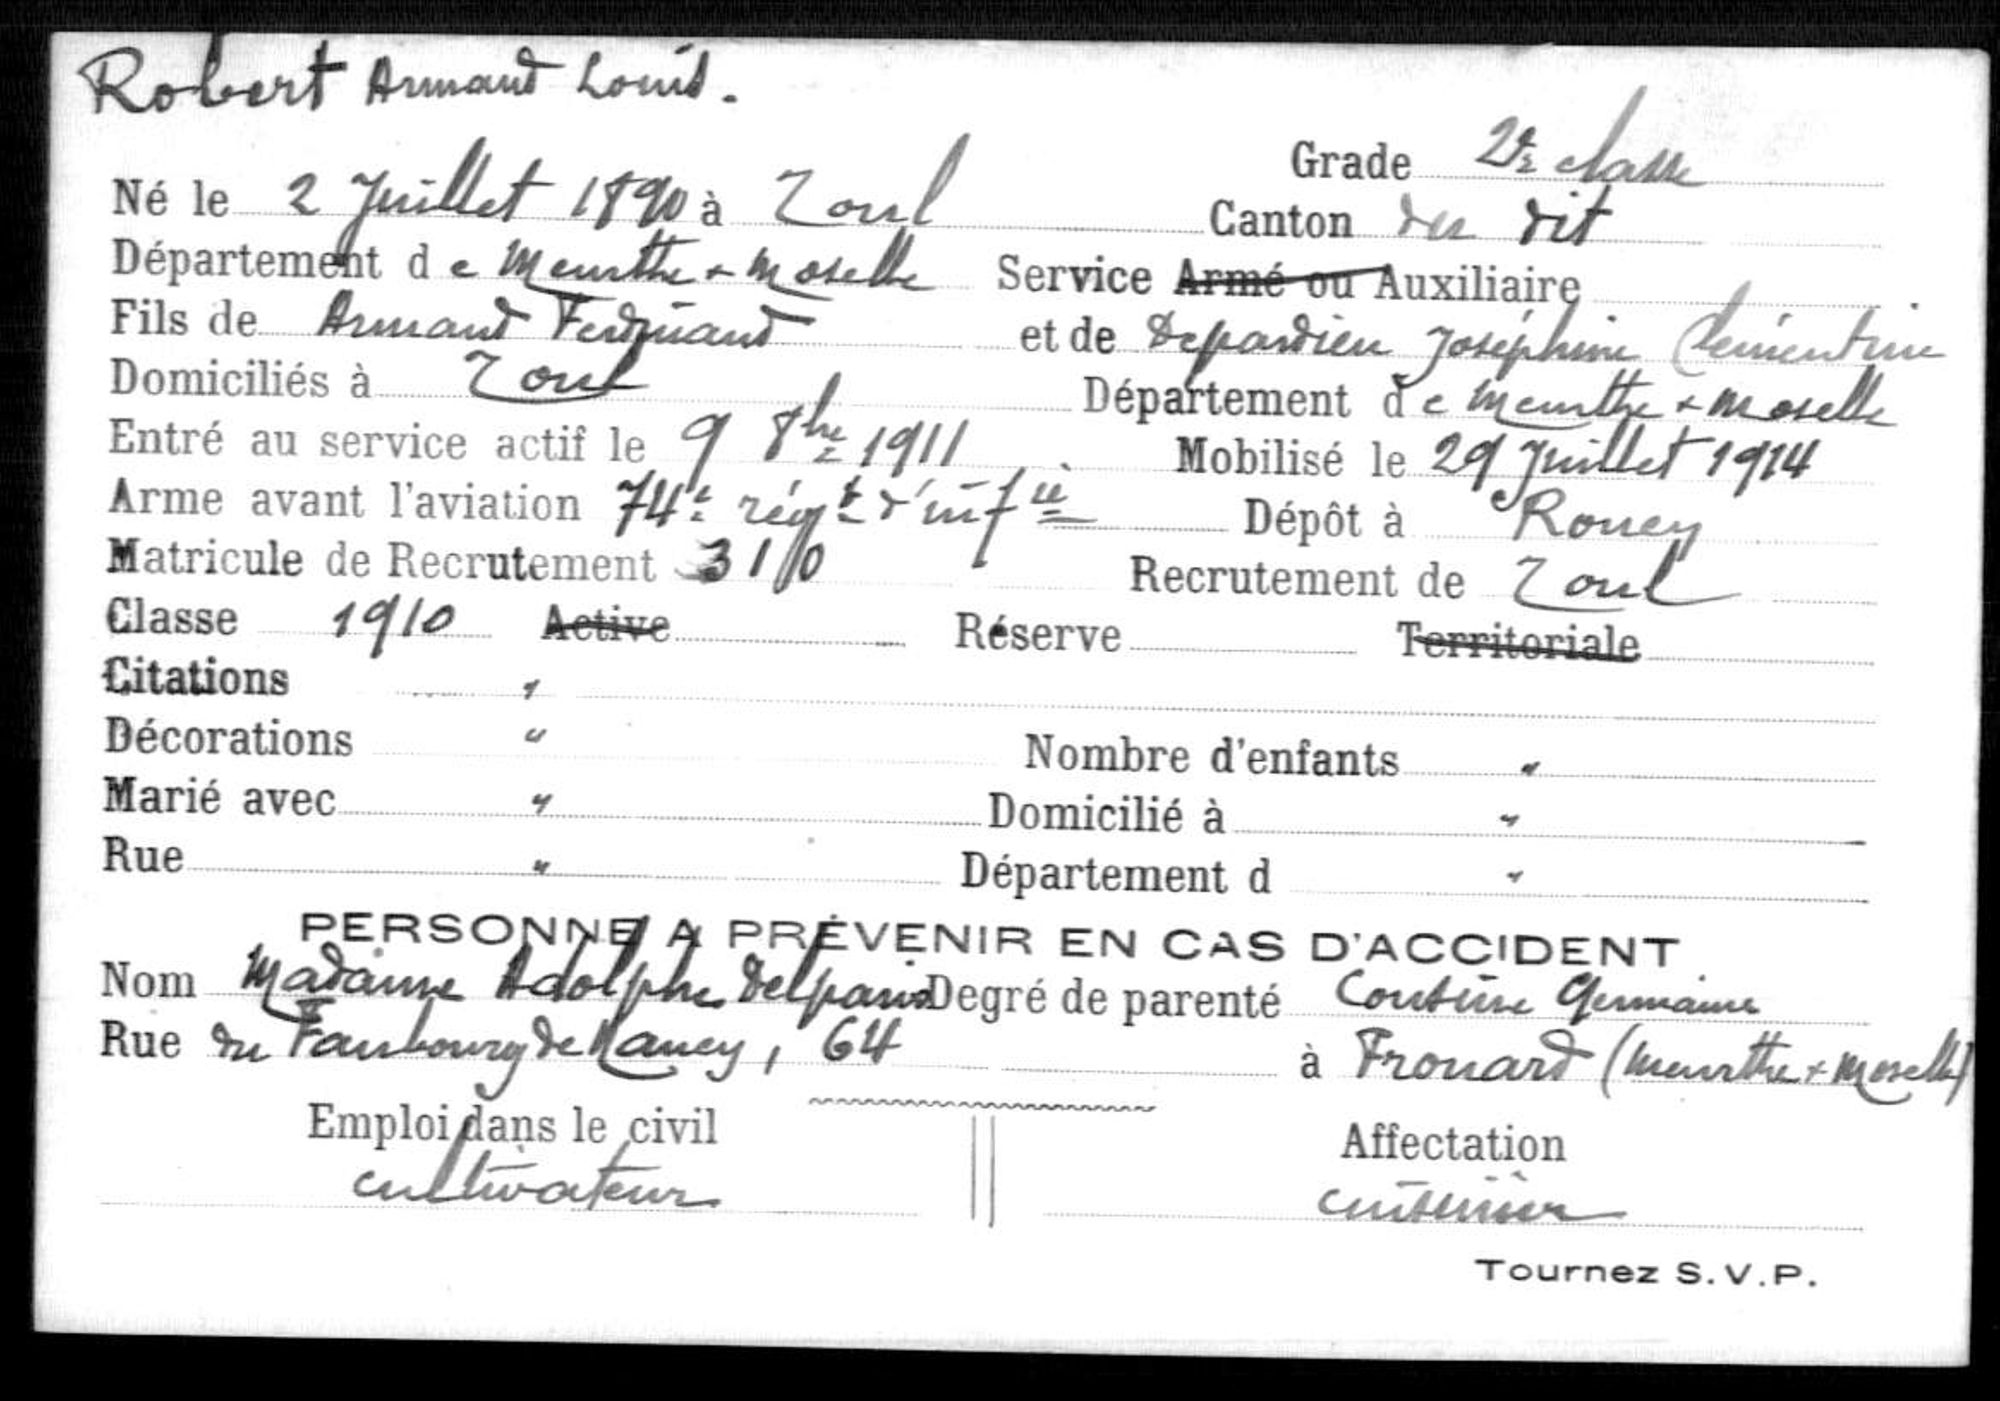 Robert Armand Louis.
Grade 2e classe
Né le 2 Juillet 1890 à Toul Canton du dit
Département de Meurthe & Moselle Service Armé ou Auxiliaire
Fils de Armand Ferdinand et de Depardieu Joséphine Clémentine
Domiciliés à Toul Département de Meurthe & Moselle
Entré au service actif le 9 8bre 1911 Mobilisé le 29 Juillet 1914
Arme avant l'aviation 74e régt d'infie Dépôt à Rouen
Matricule de Recrutement 310 Recrutement de Toul
Classe 1910 Active Réserve Territoriale
Citations "
Décorations " Nombre d'enfants "
Marié avec " Domicilié à "
Rue " Département d "
PERSONNE A PRÉVENIR EN CAS D'ACCIDENT
Nom Madame Adolphe Degré de parenté Cousine Germaine
Rue du Faubourg de Nancy, 64 à Frouard (Meurthe & Moselle)
Emploi dans le civil Affectation
cultivateur cuisinier
Tournez S.V.P.